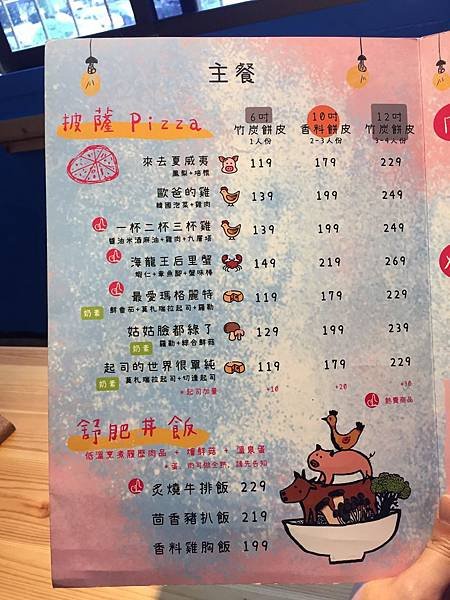 主餐
披薩 Pizza
6吋 10吋 12吋
竹炭餅皮 香料餅皮 竹炭餅皮
1人份 2-3人份 3-4人份
來去夏威夷 119 179 229
鳳梨+培根
歐爸的雞 139 199 249
韓國泡菜+雞肉
一杯二杯三杯雞 139 199 249
醬油米酒麻油+雞肉+九層塔
海龍王后里蟹 149 219 269
蝦仁+章魚腳+蟹味棒
最愛瑪格麗特 119 179 229
奶素 鮮番茄+莫札瑞拉起司+羅勒
姑姑臉都綠了 129 199 239
奶素 羅勒+綜合鮮菇
起司的世界很單純 119 179 229
奶素 莫札瑞拉起司+切達起司
*起司加量 +10 +20 +30
熱賣商品
舒肥丼飯
低溫烹煮履歷肉品 + 燴鮮菇 + 溫泉蛋
炙燒牛排飯 229
茴香豬扒飯 219
香料雞胸飯 199